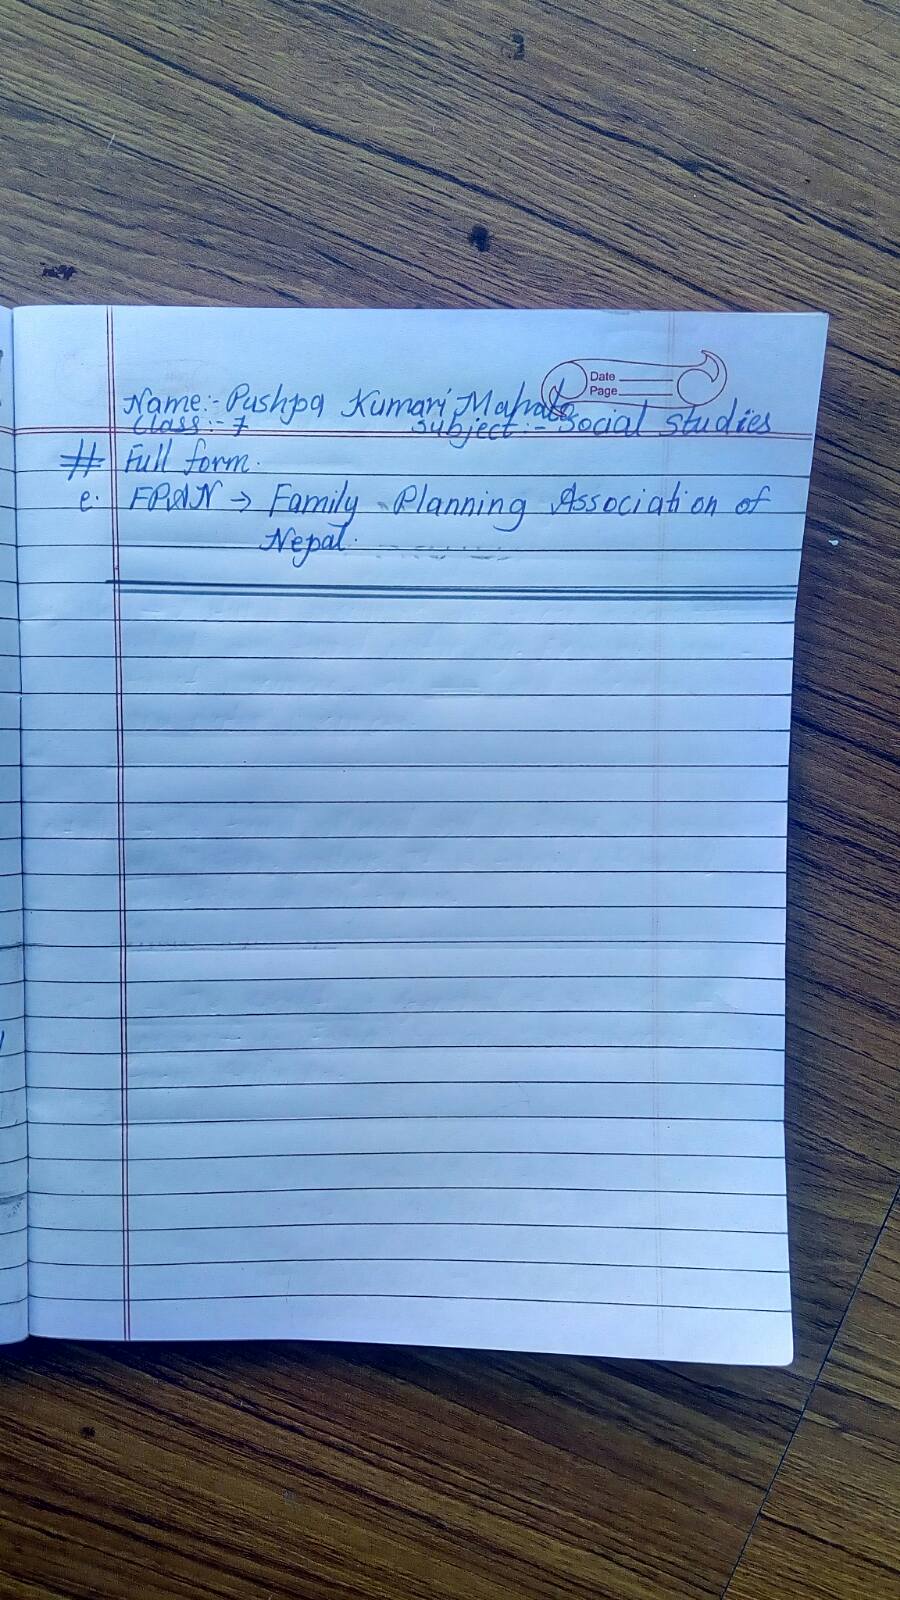 Date
Page
Name:- Pushpa Kumari Mahato
Class:- 7 Subject:- Social studies
# Full form.
e. FPAN → Family Planning Association of
Nepal.